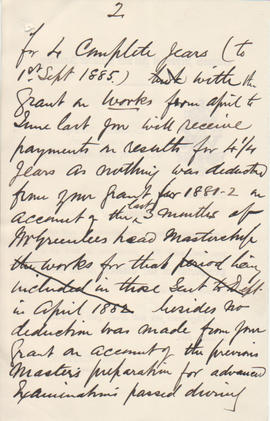 2
for 4 Complete Years (to
1st Sept 1885.) with the
Grant on Works from april to
June last you will receive
payments on results for 4 1/4
Years as nothing was deducted
from your Grant for 1881-2 on
account of the last 3 months of
Mr Greenlees head Mastership
the works for that period being
included in those Sent to Dept
in April 1882 besides no
deduction was made from your
Grant on account of the previous
Master's preparation for advanced
Examinations passed during